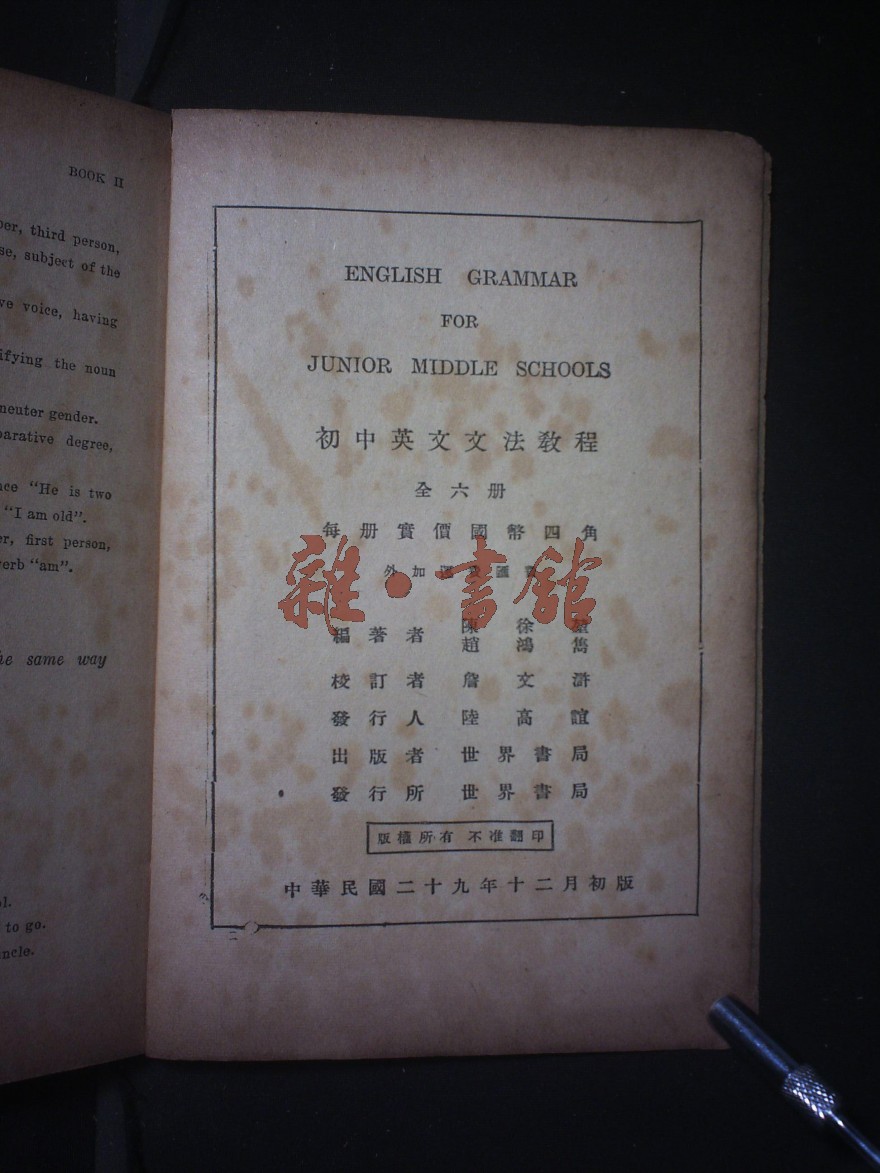 BOOK II
per, third person,
se, subject of the
ve voice, having
ifying the noun
neuter gender.
parative degree,
nce "He is two
"I am old".
er, first person,
verb "am".
he same way
ol.
to go.
ncle.
ENGLISH GRAMMAR
FOR
JUNIOR MIDDLE SCHOOLS
初中英文文法教程
全六册
每册實價國幣四角
外加
雜·書館
編著者 陳徐
趙鴻雋
校訂者 詹文滸
發行人 陸高誼
出版者 世界書局
發行所 世界書局
版權所有 不准翻印
中華民國二十九年十二月初版